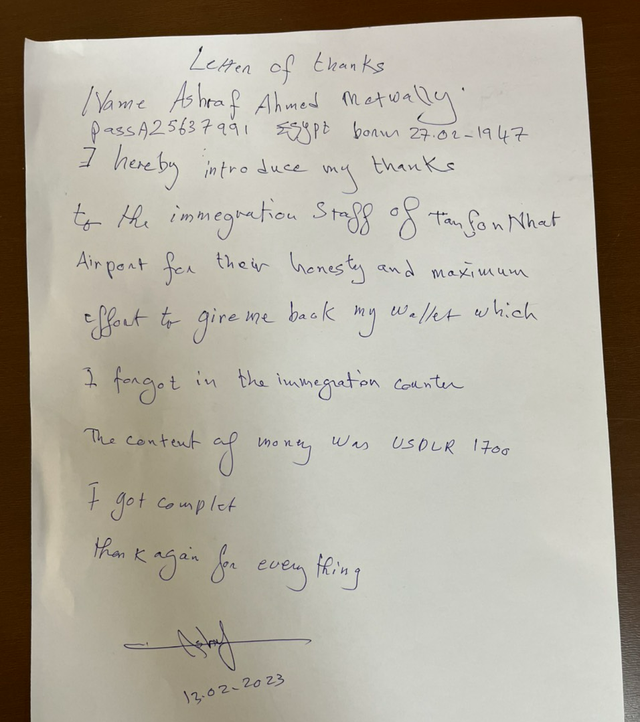 Letter of thanks
Name Ashraf Ahmed Metwally
pass A25637991 Egypt bonus 27.02-1947
I hereby introduce my thanks
to the immegration Staff of TanSonNhat
Airport for their honesty and maximum
effort to give me back my wallet which
I forgot in the immegration counter
The content of money was USDLR 1700
I got complet
thank again for every thing
Ashraf
13.02-2023